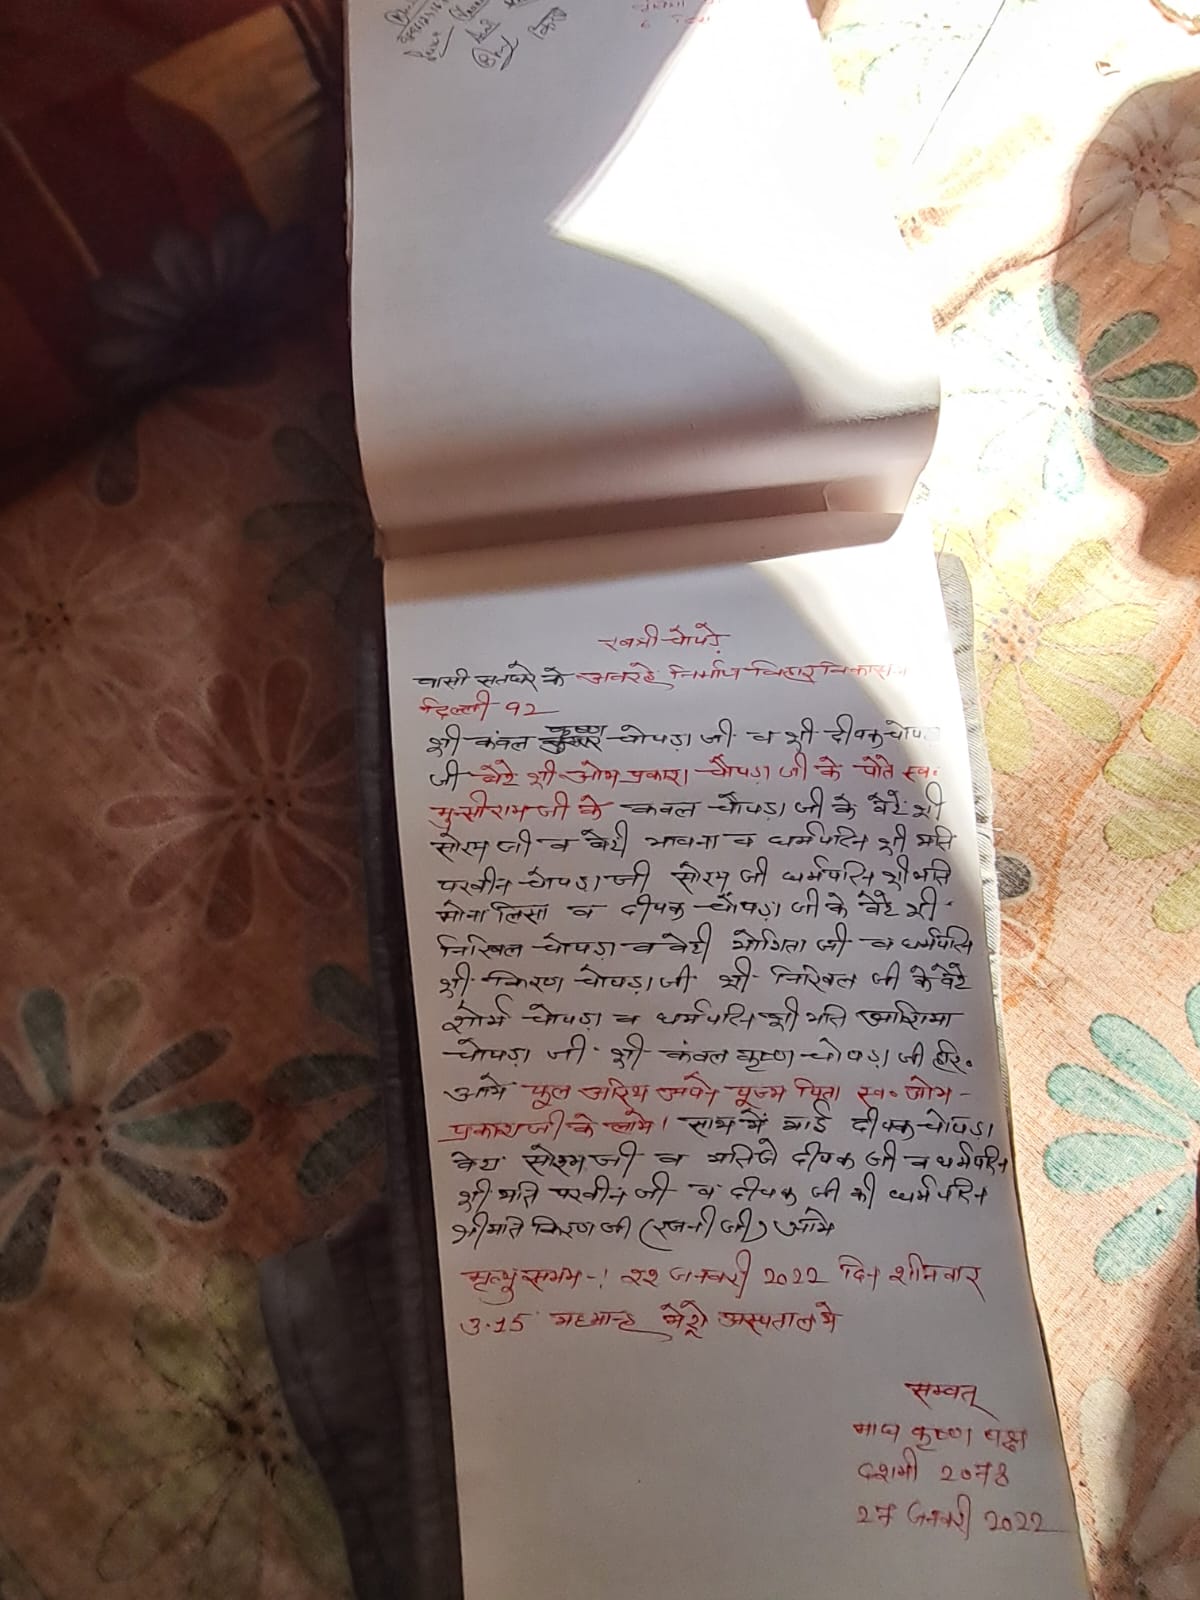 खत्री चोपड़े
वासी सतघरे के अबरहे निर्माण विहार विकास
दिल्ली 92
श्री कंवल कृष्ण चोपड़ा जी व श्री दीपक चोपड़ा
जी बेटे श्री ओम प्रकाश चौपड़ा जी के पोते स्व॰
मुन्सीराम जी के कवल चोपड़ा जी के बेटे श्री
सोरम जी व बेटी भावना व धर्मपत्नि श्री मति
परवीन चोपड़ा जी सोरम जी धर्मपत्नि श्री मति
मोना लिसा व दीपक चोपड़ा जी के बेटे श्री
निखिल चोपड़ा व बेटी योगिता जी व धर्मपत्नि
श्री किरण चोपड़ा जी श्री निखिल जी के बेटे
शोर्य चोपड़ा व धर्मपत्नि श्री मति आशिमा
चोपड़ा जी श्री कंवल कृष्ण चोपड़ा जी हरि॰
आये फूल अस्थि अपने पूज्य पिता स्व॰ ओम-
प्रकाश जी के लाये। साथ में भाई दीपक चोपड़ा
बेटा सोरम जी व भतिजे दीपक जी व धर्मपत्नि
श्री मति परवीन जी व दीपक जी की धर्म पत्नि
श्रीमति किरण जी (रजनी जी) आये
मृत्यु समय-! २२ जनवरी 2022 दिन शनिवार
3.15 मध्यान्ह मेट्रो अस्पताल मे
सम्वत्
माघ कृष्ण पक्ष
दशमी 2078
27 जनवरी 2022